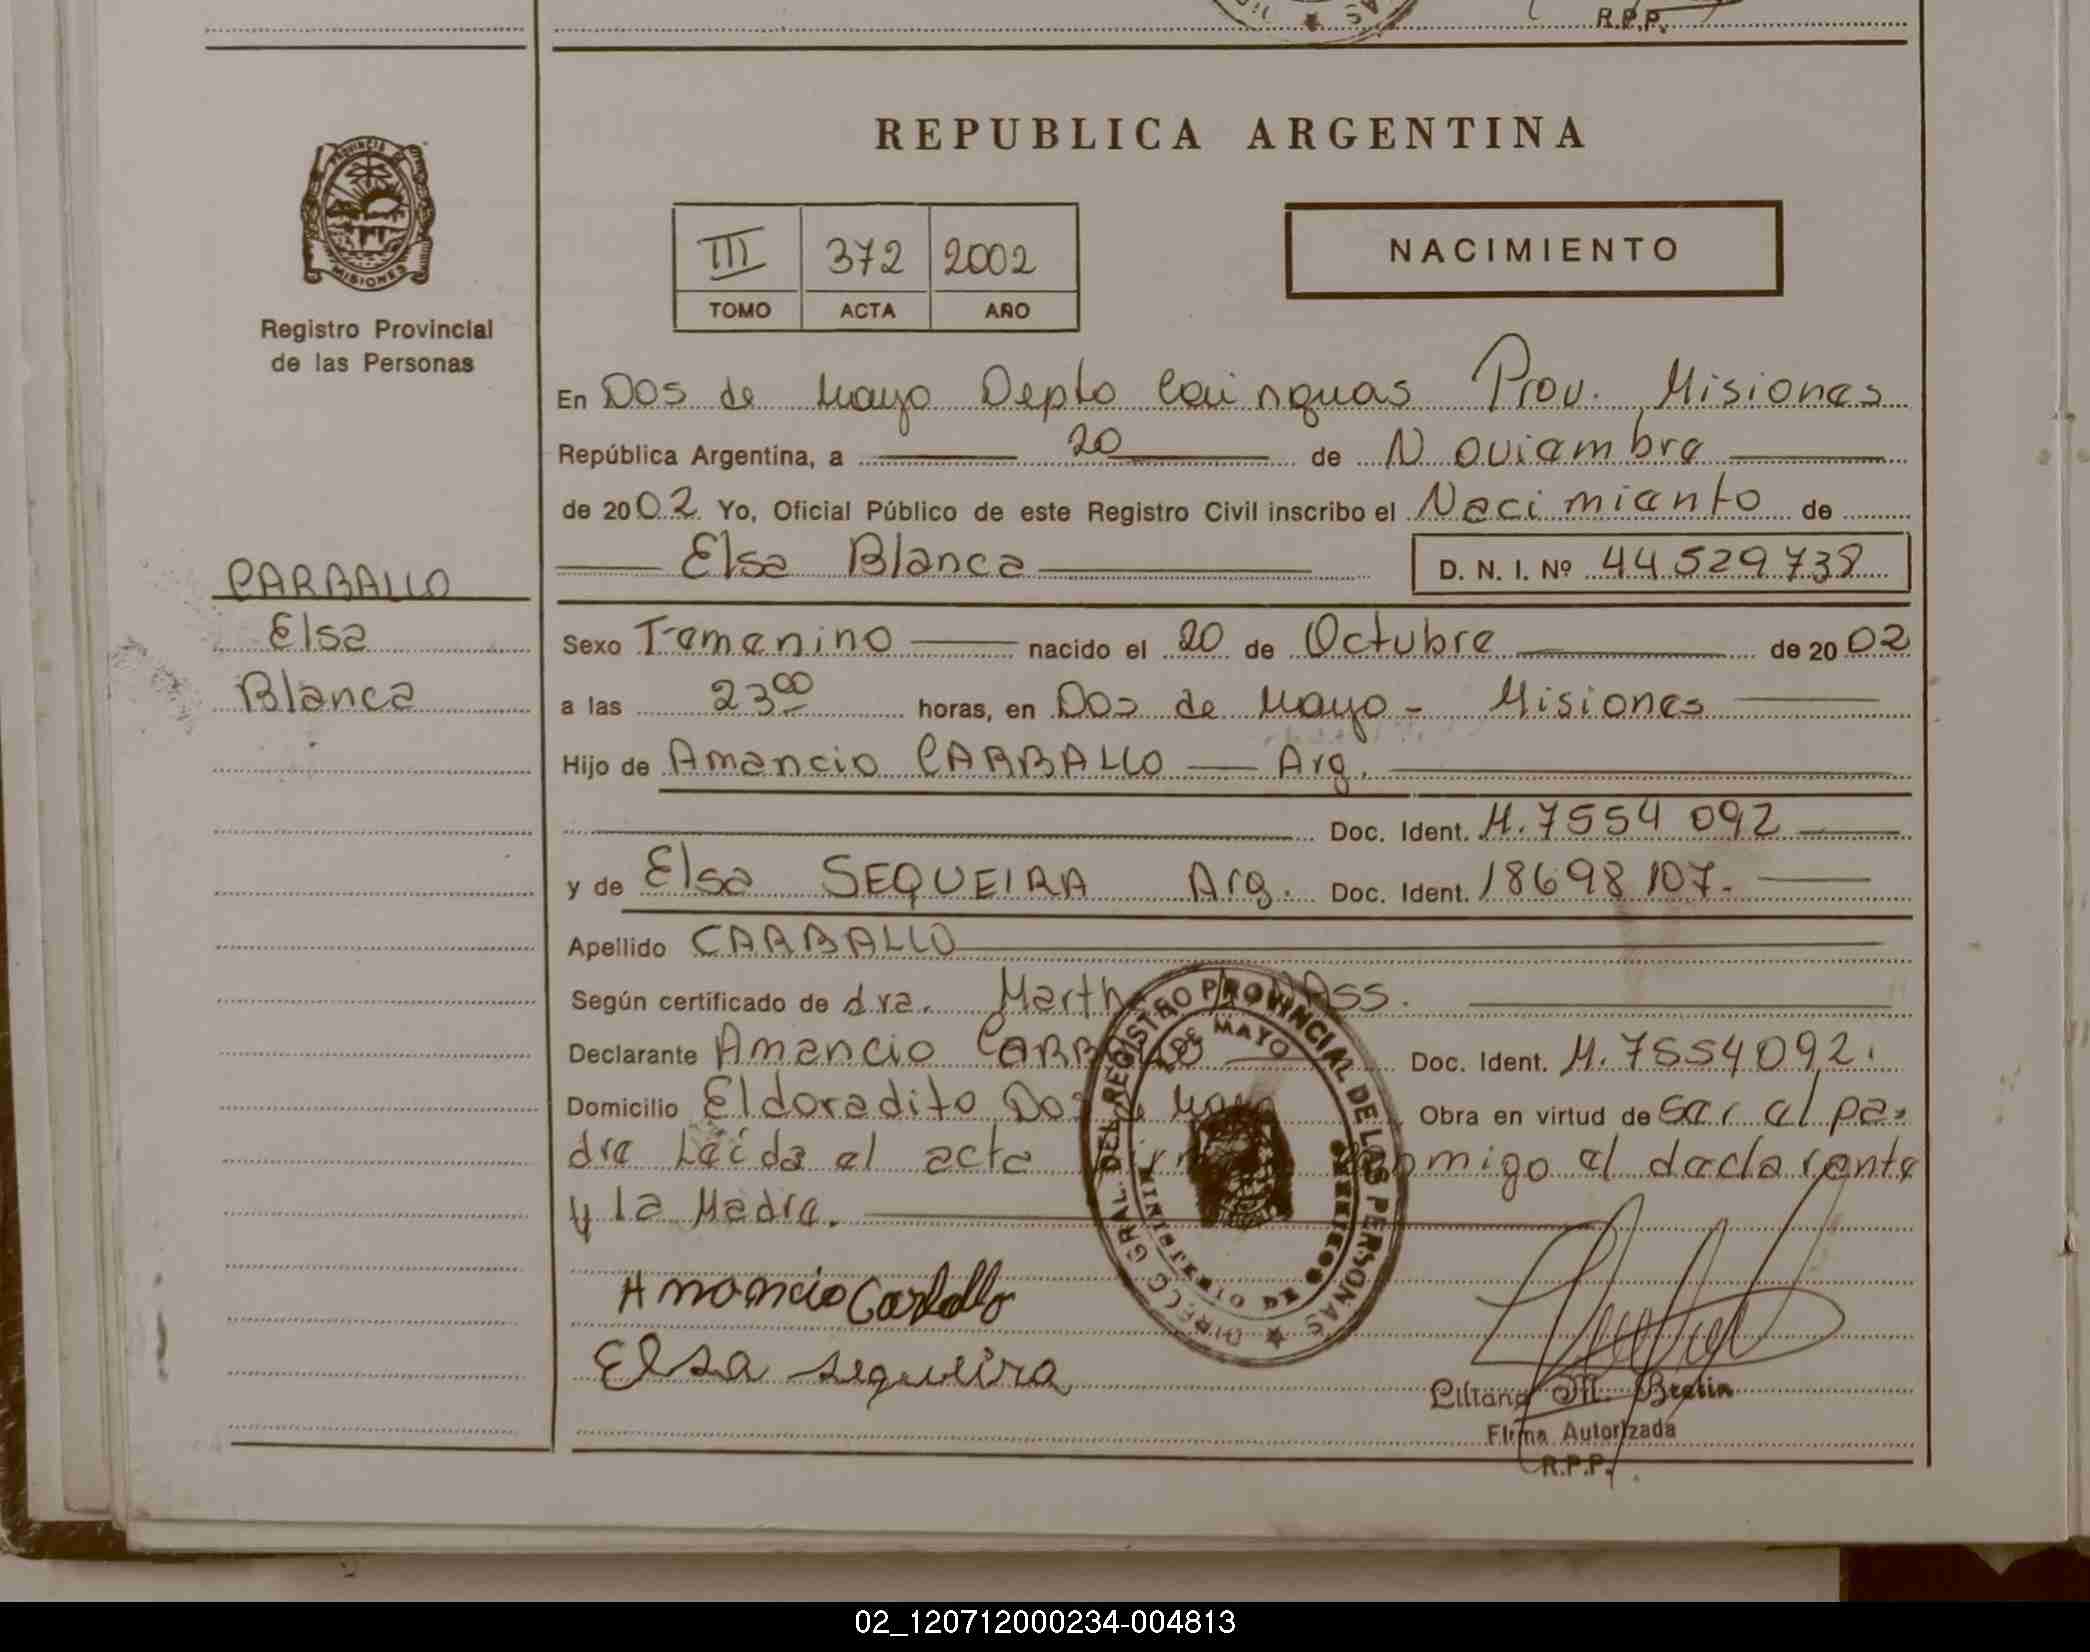 R.P.P.
REPUBLICA ARGENTINA
PROVINCIA DE
MISIONES
Registro Provincial
de las Personas
III 372 2002
TOMO ACTA AÑO
NACIMIENTO
En Dos de Mayo Depto Cainguas Prov. Misiones
República Argentina, a 20 de Noviembre
de 2002 Yo, Oficial Público de este Registro Civil inscribo el Nacimiento de
Elsa Blanca D. N. I. Nº 44529738
CARBALLO
Elsa
Blanca
Sexo Femenino nacido el 20 de Octubre de 2002
a las 23 00 horas, en Dos de Mayo - Misiones
Hijo de Amancio CARBALLO Arg.
Doc. Ident. M. 7554 092
y de Elsa SEQUEIRA Arg. Doc. Ident. 18698107.
Apellido CARBALLO
Según certificado de dra.
Declarante Amancio CARBALLO Doc. Ident. M. 7554092.
Domicilio Eldoradito Dos de Mayo Obra en virtud de ser el pa-
dre Leída el acta conmigo el declarante
y la Madre.
DIRECC. GRAL. DEL REGISTRO PROVINCIAL DE LAS PERSONAS
2 DE MAYO
MINISTERIO DE GOBIERNO
Amancio Carballo
Elsa sequeira
Liliana M.
Firma Autorizada
R.P.P.
02_120712000234-004813